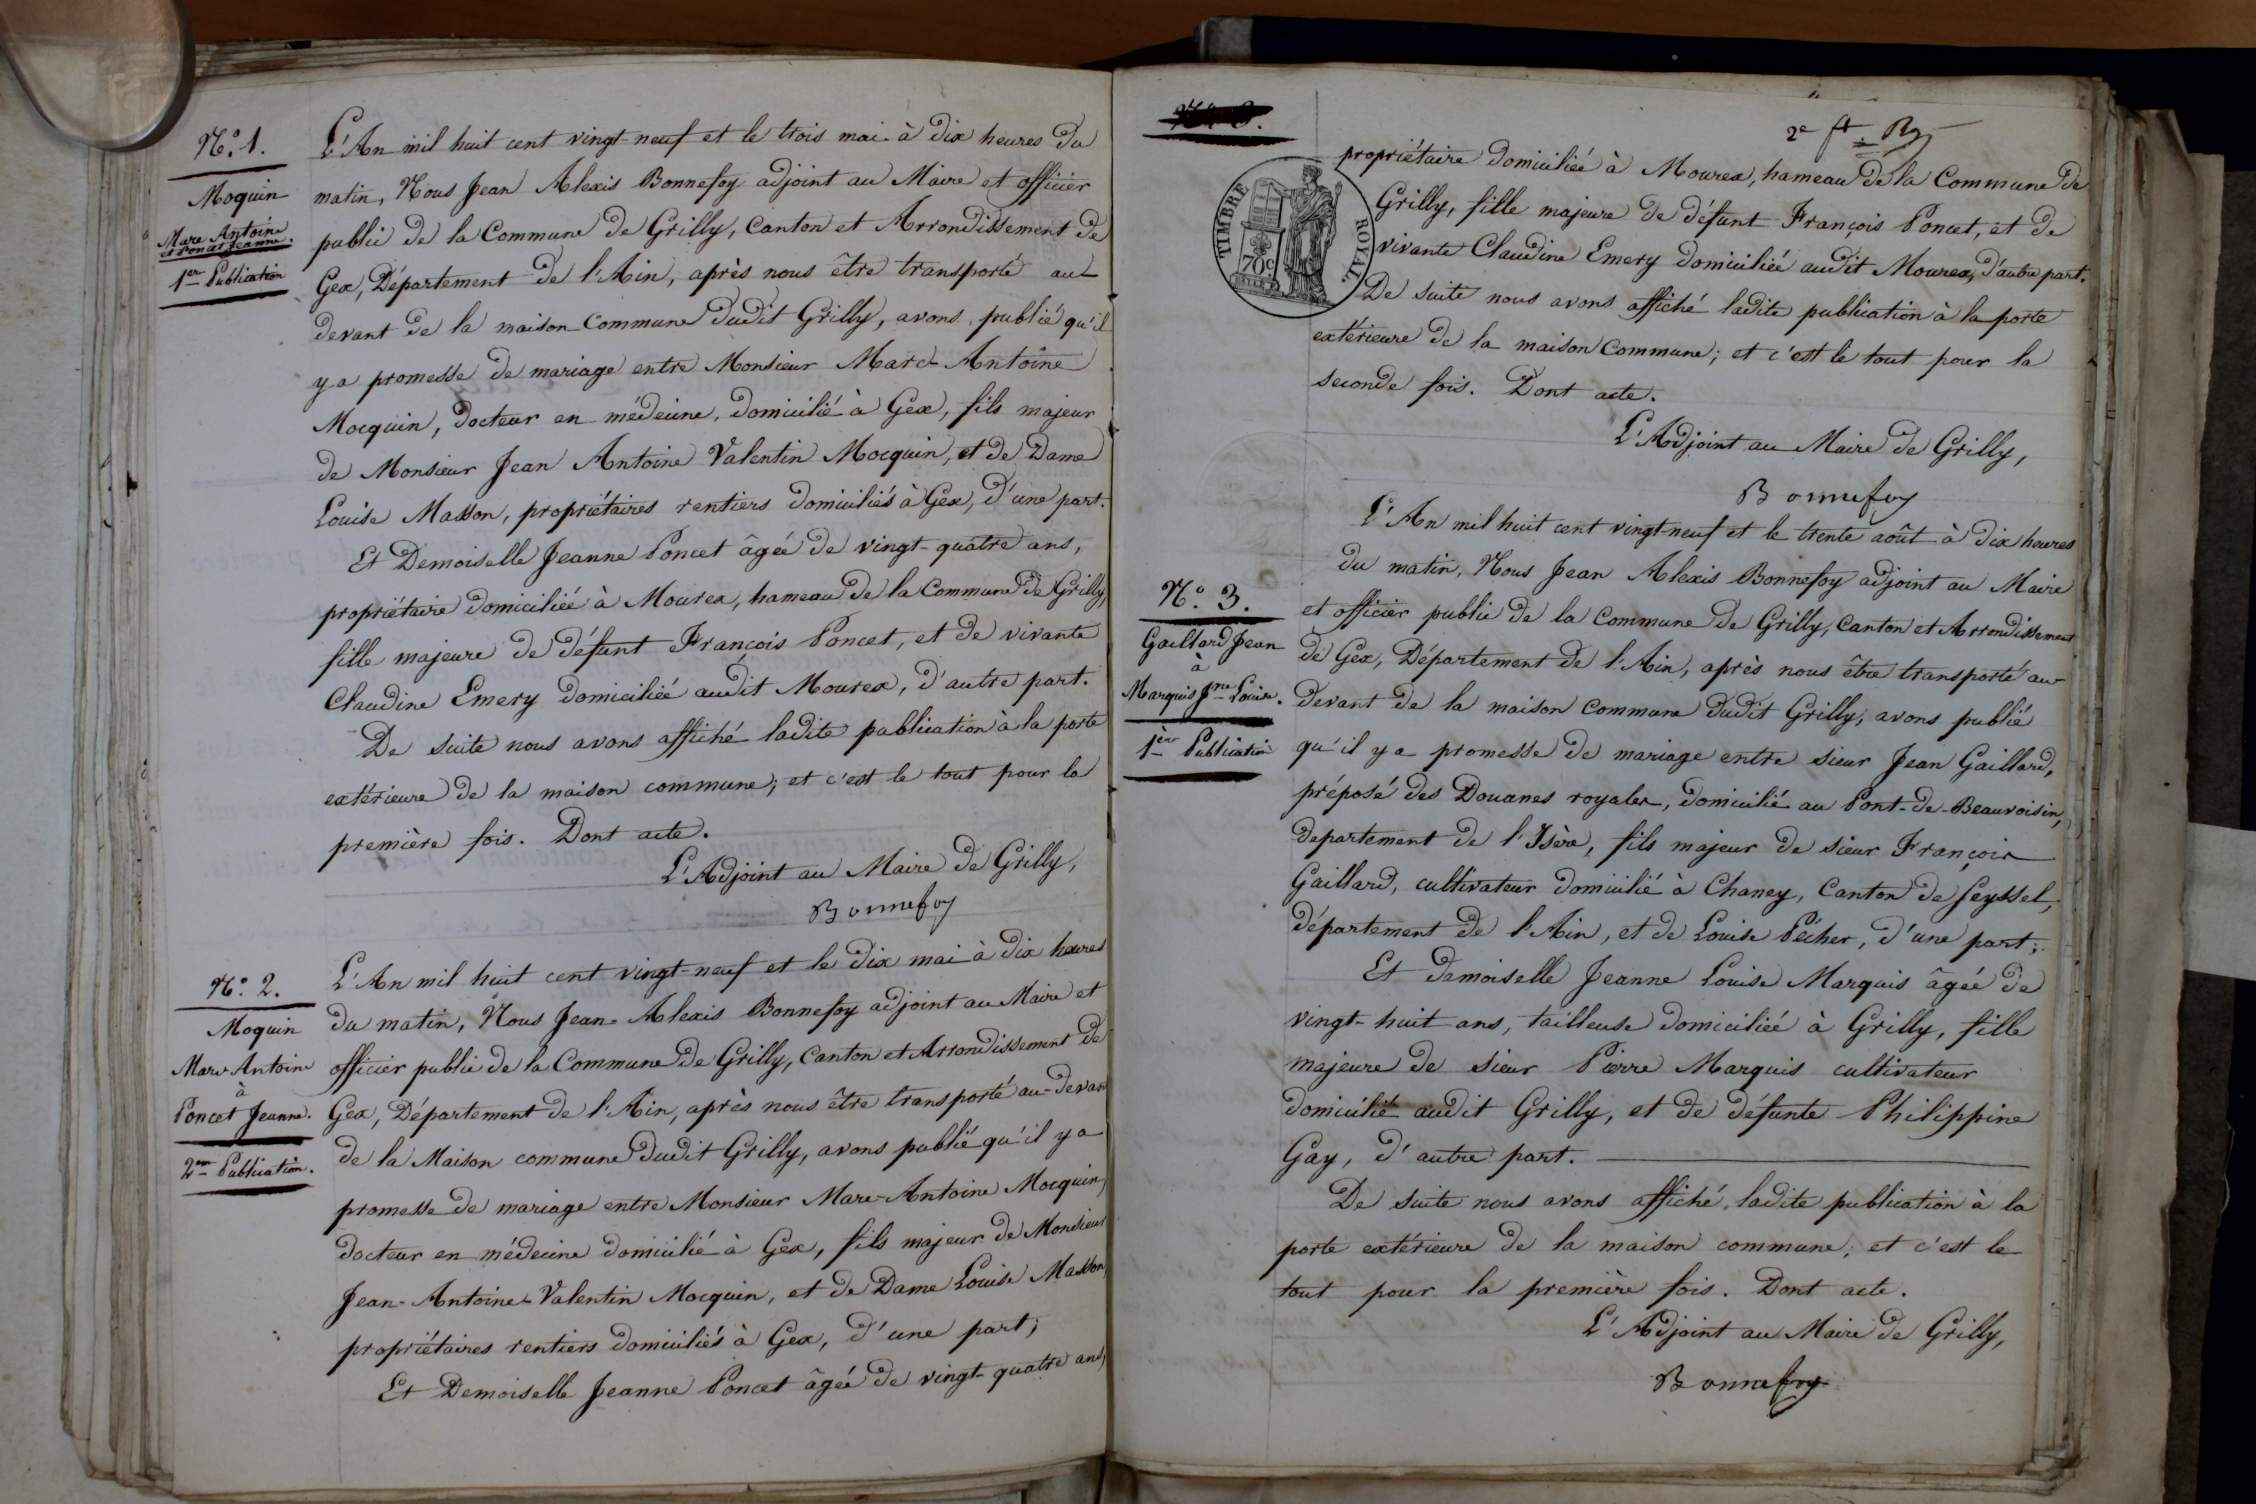 N.° 1.
Moquin
Marc Antoine
et Poncet Jeanne.
1ère Publication
L'An mil huit cent vingt-neuf et le trois mai à dix heures du
matin, Nous Jean Alexis Bonnefoy adjoint au Maire et officier
public de la Commune de Grilly, Canton et Arrondissement de
Gex, Département de l'Ain, après nous être transporté au
devant de la maison Commune dudit Grilly, avons publié qu'il
y a promesse de mariage entre Monsieur Marc-Antoine
Mocquin, docteur en médecine, domicilié à Gex, fils majeur
de Monsieur Jean Antoine Valentin Mocquin, et de Dame
Louise Masson, propriétaires rentiers domiciliés à Gex, d'une part.
Et Demoiselle Jeanne Poncet âgée de vingt-quatre ans,
propriétaire domiciliée à Mourex, hameau de la Commune de Grilly,
fille majeure de défunt François Poncet, et de vivante
Claudine Emery domiciliée audit Mourex, d'autre part.
De suite nous avons affiché ladite publication à la porte
extérieure de la maison commune; et c'est le tout pour la
première fois. Dont acte.
L'Adjoint au Maire de Grilly,
Bonnefoy
N.° 2.
Moquin
Marc Antoine
à
Poncet Jeanne.
2me Publication.
L'An mil huit cent vingt-neuf et le dix mai à dix heures
du matin, Nous Jean-Alexis Bonnefoy adjoint au Maire et
officier public de la Commune de Grilly, Canton et Arrondissement de
Gex, Département de l'Ain, après nous être transporté au-devan
de la Maison commune dudit Grilly, avons publié qu'il y a
promesse de mariage entre Monsieur Marc-Antoine Mocquin,
docteur en médecine domicilié à Gex, fils majeur de Monsieur
Jean-Antoine-Valentin Mocquin, et de Dame Louise Masson
propriétaires rentiers domiciliés à Gex, d'une part;
Et Demoiselle Jeanne Poncet âgée de vingt-quatre ans,
2e ft
TIMBRE ROYAL.
70c
propriétaire domiciliée à Mourex, hameau de la Commune de
Grilly, fille majeure de défunt François Poncet, et de
vivante Claudine Emery domiciliée audit Mourex, d'autre part.
De suite nous avons affiché ladite publication à la porte
extérieure de la maison Commune; et c'est le tout pour la
seconde fois. Dont acte.
L'Adjoint au Maire de Grilly,
Bonnefoy
N.° 3.
Gaillard Jean
à
Marquis Jne Louise.
1ère Publication
L'An mil huit cent vingt-neuf et le trente août à dix heures
du matin, Nous Jean Alexis Bonnefoy adjoint au Maire
et officier public de la Commune de Grilly, Canton et Arrondissement
de Gex, Département de l'Ain, après nous être transporté au
devant de la maison commune dudit Grilly, avons publié
qu'il y a promesse de mariage entre sieur Jean Gaillard,
préposé des Douanes royales, domicilié au Pont-de-Beauvoisin,
departement de l'Isère, fils majeur de sieur François
Gaillard, cultivateur domicilié à Chaney, Canton de Seyssel,
département de l'Ain, et de Louise Pécher, d'une part;
Et demoiselle Jeanne Louise Marquis âgée de
vingt-huit ans, tailleuse domiciliée à Grilly, fille
majeure de sieur Pierre Marquis cultivateur
domicilié audit Grilly, et de défunte Philippine
Gay, d'autre part.
De suite nous avons affiché ladite publication à la
porte extérieure de la maison commune; et c'est le
tout pour la première fois. Dont acte.
L'Adjoint au Maire de Grilly,
Bonnefoy